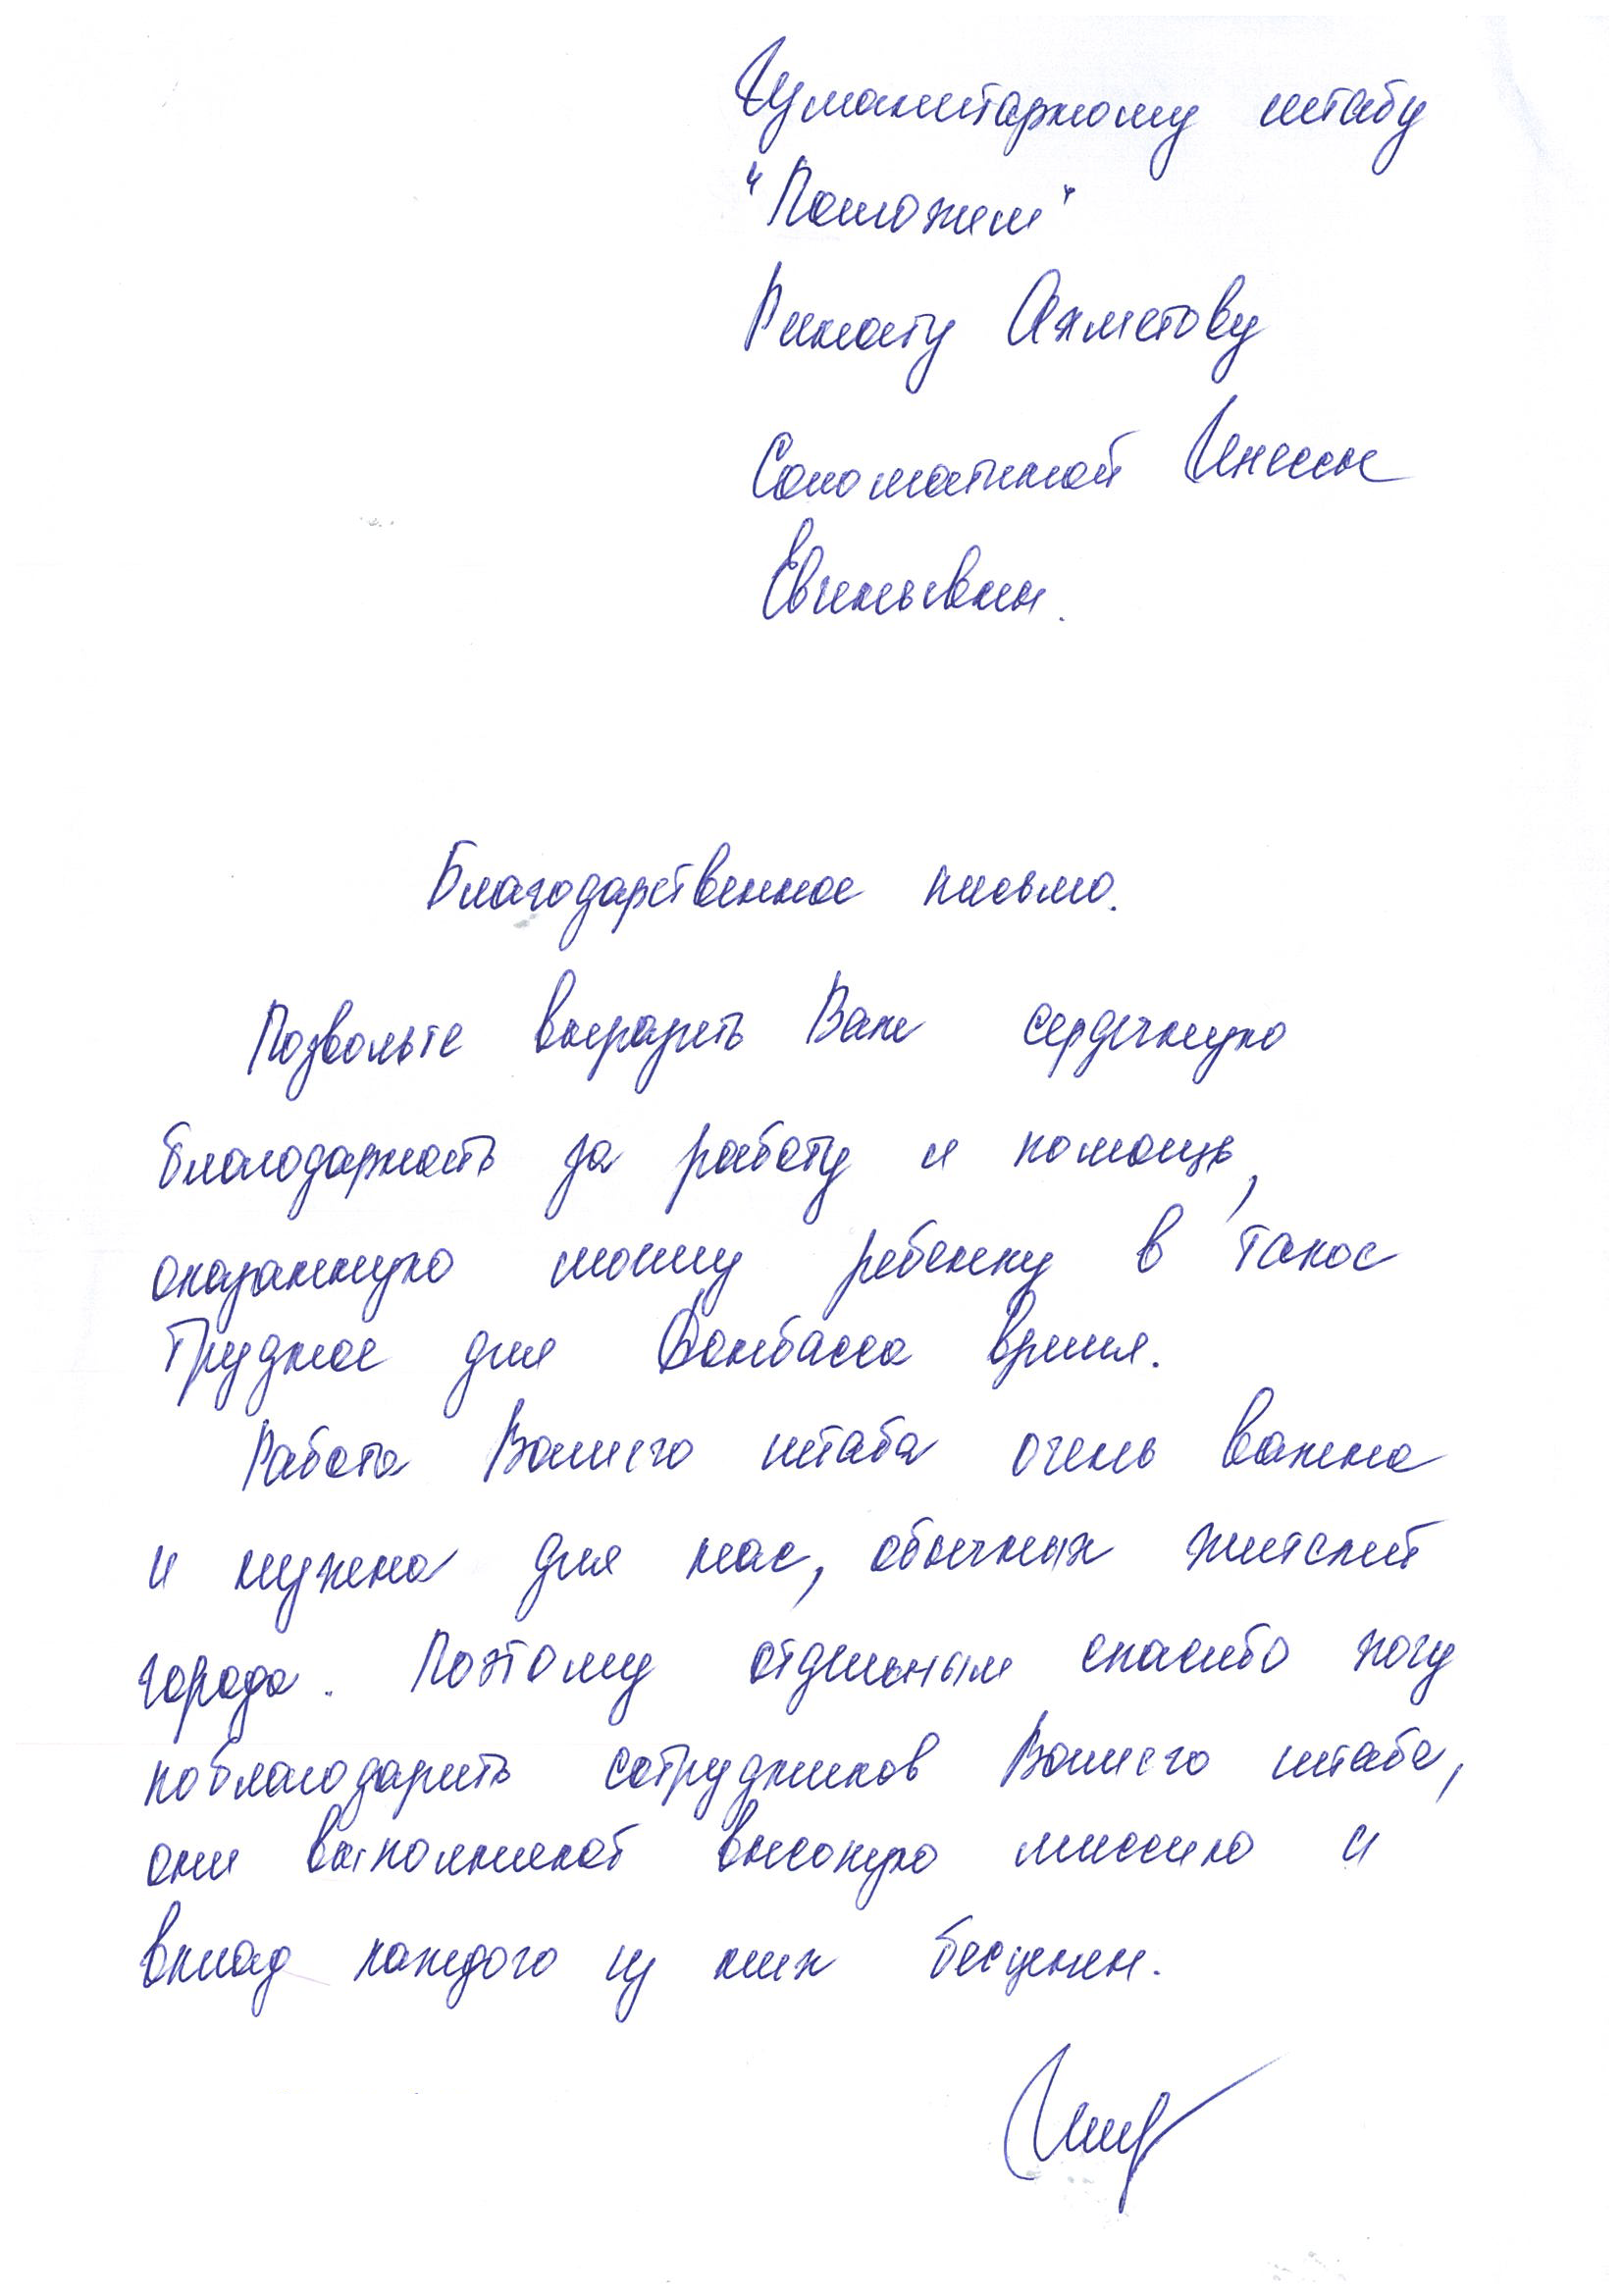 Гуманитарному штабу
"Поможем"
Ринату Ахметову
Соломатиной Инессы
Евгеньевны.
Благодарственное письмо.
Позвольте выразить Вам сердечную
благодарность за работу и помощь,
оказанную моему ребенку в такое
трудное для Донбасса время.
Работа Вашего штаба очень важна
и нужна для нас, обычных жителей
города. Поэтому отдельным спасибо хочу
поблагодарить сотрудников Вашего штаба,
они выполняют высокую миссию и
вклад каждого из них бесценен.